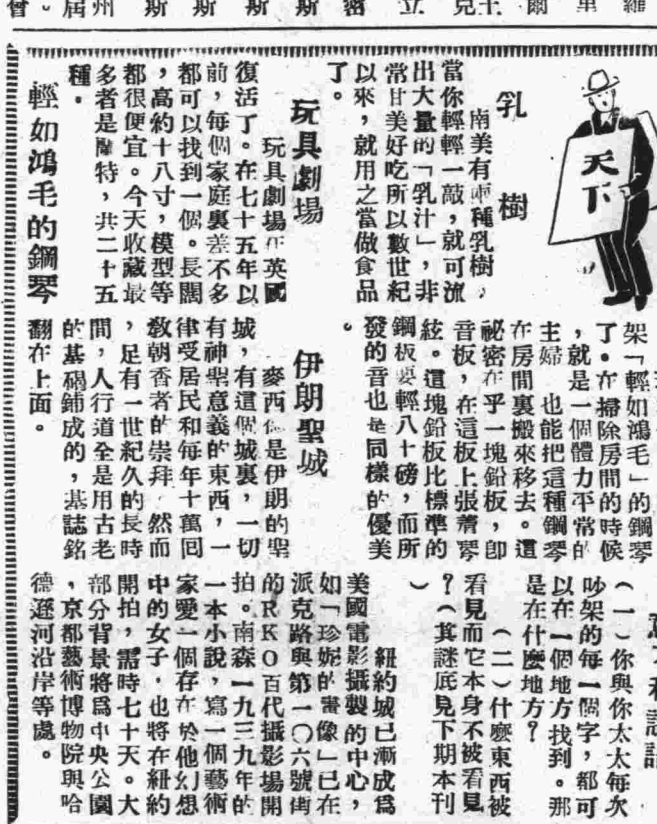 會。屆州 斯 斯 斯 斯 密 立 克 士 爾 里 羅
天下
乳樹
南美有兩種乳樹,
當你輕輕一敲,就可流
出大量的「乳汁」,非
常甘美好吃所以數世紀
以來,就用之當做食品
了。
玩具劇場
玩具劇場在英國
復活了。在七十五年以
前,每個家庭裏差不多
都可以找到一個。長闊
,高約十八寸,模型等
都很便宜。今天收藏最
多者是蘭特,共二十五
種。
輕如鴻毛的鋼琴
架「輕如鴻毛」的鋼琴
了。在掃除房間的時候
,就是一個體力平常的
主婦 也能把這種鋼琴
在房間裏搬來移去。這
祕密在乎一塊鉛板,卽
音板,在這板上張着琴
絃。這塊鉛板比標準的
鋼板要輕八十磅,而所
發的音也是同樣的優美
。
伊朗聖城
麥西德是伊朗的聖
城,有這個城裏,一切
有神聖意義的東西,一
律受居民和每年十萬回
敎朝香者的崇拜 然而
,足有一世紀久的長時
間,人行道全是用古老
的基碣鋪成的,基誌銘
翻在上面。
(一)你與你太太每次
吵架的每一個字,都可
以在一個地方找到。那
是在什麼地方?
(二)什麼東西被
看見而它本身不被看見
?(其謎底見下期本刊
)
紐約城已漸成爲
美國電影攝製的中心,
如「珍妮的畫像」已在
派克路與第一〇六號街
的RKO百代攝影場開
拍。南森一九三九年的
一本小說,寫一個藝術
家愛一個存在於他幻想
中的女子,也將在紐約
開拍,需時七十天。大
部分背景將爲中央公園
,京都藝術博物院與哈
德遜河沿岸等處。